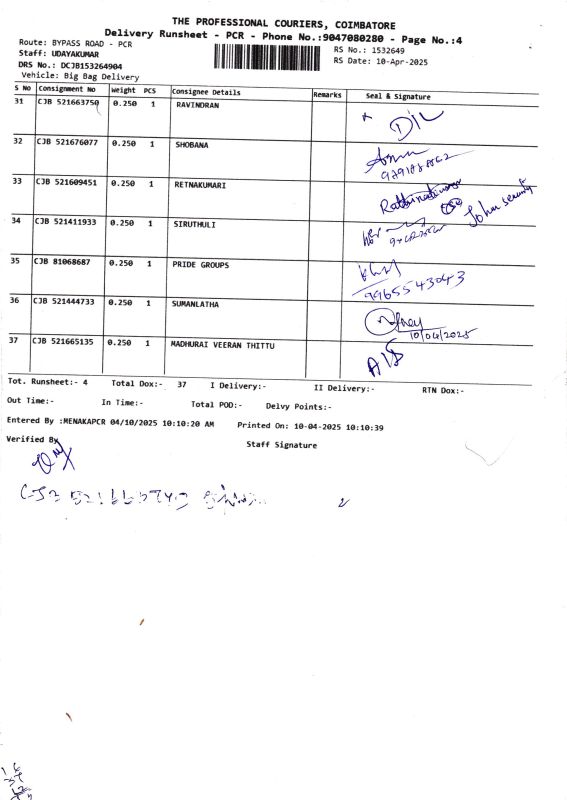 THE PROFESSIONAL COURIERS, COIMBATORE
Delivery Runsheet - PCR - Phone No.:9047080280 - Page No.:4
Route: BYPASS ROAD - PCR
RS No.: 1532649
Staff: UDAYAKUMAR
RS Date: 10-Apr-2025
DRS No.: DCJB153264904
Vehicle: Big Bag Delivery
S No Consignment No Weight PCS Consignee Details Remarks Seal & Signature
31 CJB 521663750 0.250 1 RAVINDRAN
32 CJB 521676077 0.250 1 SHOBANA
33 CJB 521609451 0.250 1 RETNAKUMARI
34 CJB 521411933 0.250 1 SIRUTHULI
35 CJB 81068687 0.250 1 PRIDE GROUPS
9965543043
36 CJB 521444733 0.250 1 SUMANLATHA
10/04/2025
37 CJB 521665135 0.250 1 MADHURAI VEERAN THITTU
Tot. Runsheet:- 4 Total Dox:- 37 I Delivery:- II Delivery:- RTN Dox:-
Out Time:- In Time:- Total POD:- Delvy Points:-
Entered By :MENAKAPCR 04/10/2025 10:10:20 AM Printed On: 10-04-2025 10:10:39
Verified By
Staff Signature